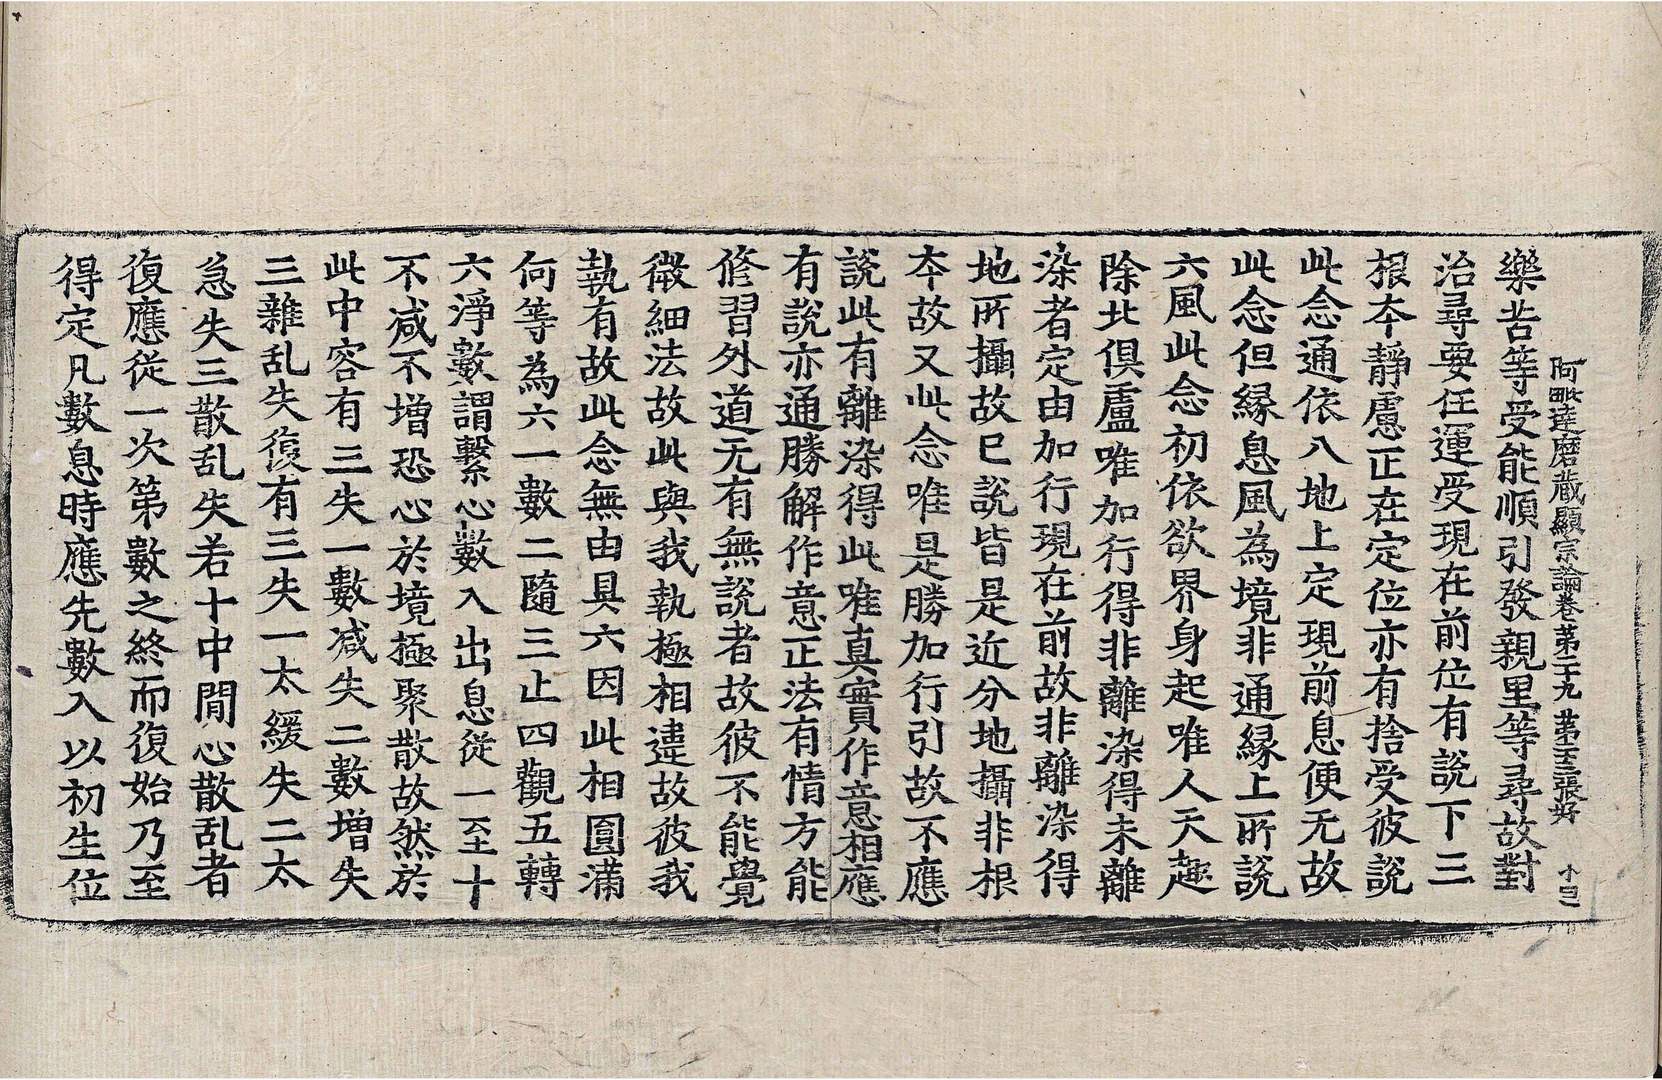 阿毗達磨蔵顯宗論卷第二十九 第三張好
樂苦等受能順引發親里等尋故對
治尋要任運受現在前位有說下三
根夲靜慮正在定位亦有捨受彼說
此念通依八地上定現前息便无故
此念但縁息風為境非通縁上所說
六風此念初依欲界身起唯人天趣
除北俱盧唯加行得非離染得未離
染者定由加行現在前故非離染得
地所攝故已說皆是近分地攝非根
夲故又此念唯是勝加行引故不應
說此有離染得此唯真實作意相應
有說亦通勝解作意正法有情方能
修習外道无有無說者故彼不能覺
微細法故此與我執極相違故彼我
執有故此念無由具六因此相圓滿
何等為六一數二隨三止四觀五轉
六淨數謂繫心數入出息從一至十
不减不增恐心於境極聚散故然於
此中容有三失一數减失二數增失
三雜乱失復有三失一太緩失二太
急失三散乱失若十中間心散乱者
復應從一次第數之終而復始乃至
得定凡數息時應先數入以初生位